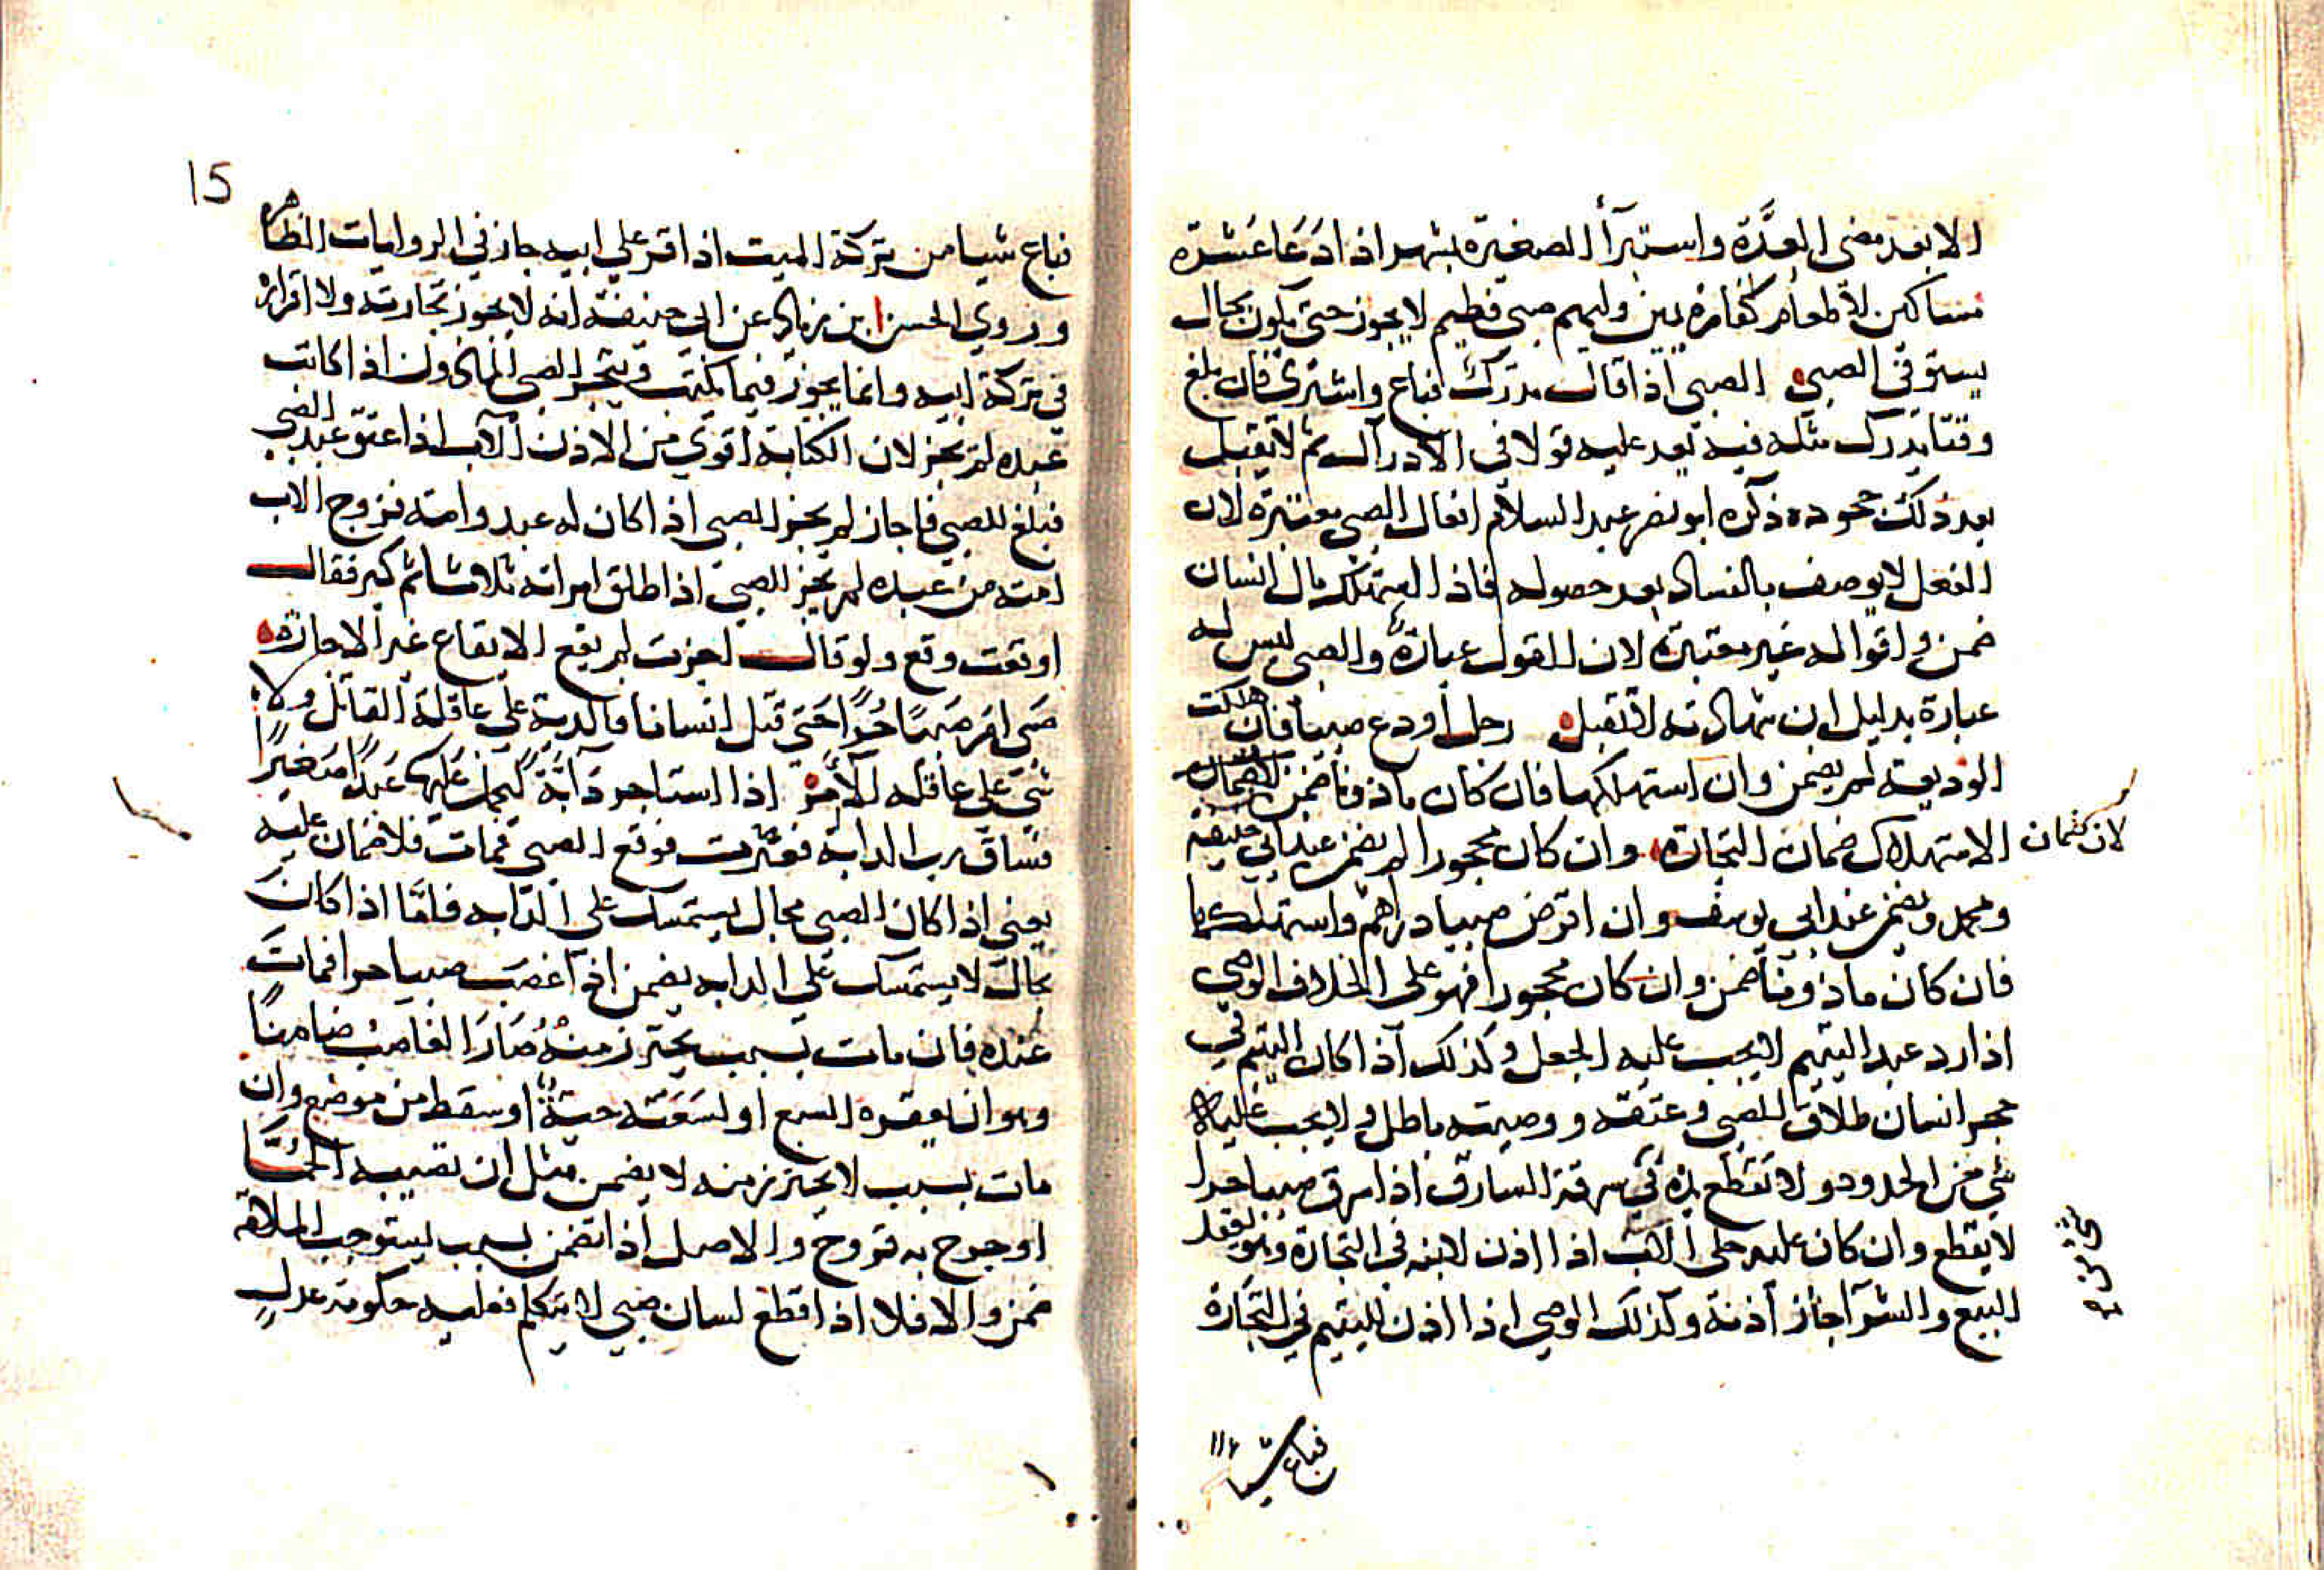 الا بعد مضى العدة واستبرأ الصغيرة بشهر اذا دعا عشرة
مساكين لاطعام كفارة يمين وليهم صبى فطيم لا يجوز حتى يكون بحال
يستوفى الصبى الصبى اذا قال مدرك فباع واشترى فان بلغ
وقتا يدرك مثله فيه يعد عليه قولا فى الادراك ثم لا يقبل
بعد ذلك جحوده ذكره ابو نصر عبد السلام افعال الصبى معتبرة لان
الفعل لا يوصف بالفساد بعد حصوله فاذا استهلك مال انسان
ضمن واقواله غير معتبرة لان القول عبارة والصبى ليس له
عبارة بدليل ان شهادته لا تقبل رجل أودع صبيا فان هلكت
الوديعة لم يضمن وان استهلكها فان كان ماذونا ضمن
لان ضمان الاستهلاك ضمان التجارة وان كان محجورا لم يضمن عند ابي حنيفة
ومحمد ويضمن عند ابي يوسف وان اقرض صبيا دراهم واستهلكها
فان كان ماذونا ضمن وان كان محجورا فهو على الخلاف الوصي
اذا رد عبد اليتيم لا يجب عليه الجعل وكذلك اذا كان اليتيم في
حجر انسان طلاق الصبى وعتقه ووصيته باطل ولا يجب عليه
شي من الحدود ولا تقطع يده في سرقة السارق اذا سرق صبيا حرا
لا يقطع وان كان عليه حلى الاب اذا اذن لابنه فى التجارة وهو يعقل
البيع والشرآ جاز أذنه وكذلك الوصي اذا اذن لليتيم في التجارة
فباع شيا
15
فباع شيا من تركة الميت اذا اقر على ابيه جاز في الروايات الظاهرة
وروي الحسن ابن زياد عن ابى حنيفة انه لا يجوز تجارته ولا اقراره
في تركة ابيه وانما يجوز فيما يكتسب ويتجر الصبى الماذون اذا كاتب
عبده لم يجز لان الكتابة اقوي من الاذن الاب اذا عتق عبد الصبي
فبلغ الصبي فاجاز لم يجز الصبى اذا كان له عبد وامته فزوج الاب
امته من عبده لم يجز الصبي اذا طلق امراته ثلاثا ثم كبر فقال
اوقعت وقع ولو قال اجزت لم يقع الايقاع غير الاجازة
صبى امر صبيا حرا حتى قتل انسانا فالدية على عاقلة القاتل ولا
شئ على عاقله الآمر اذا استاجر دآبة ليحمل عليها عبدا صغيرا
فساق رب الدابة فعثرت فوقع الصبى فمات فلا ضمان عليه
يعني اذا كان الصبى بحال يستمسك على الدابه فاما اذا كان
بحال لا يستمسك على الدابه يضمن اذا غصب صبيا حرا فمات
عنده فان مات بسبب يحترز منه صار الغاصب ضامنا
وهو ان يعقره السبع او لسعته حية او سقط من موضع وان
مات بسبب لا يحترز منه لا يضمن مثل ان تصيبه الحمى
او جرح به قروح والاصل اذا تضمن بسبب يستوجب
ضمن والا فلا اذا قطع لسان صبي لا يتكلم فعليه حكومة عدل